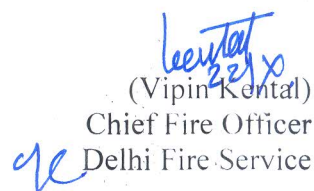 Kental
(Vipin Kental)
Chief Fire Officer
Delhi Fire Service